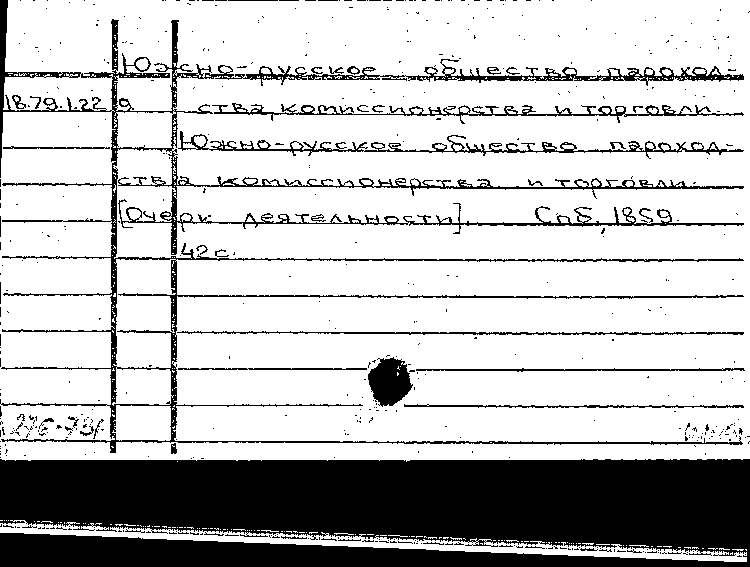 Южно-русское общество пароход-
18.79.1.22 9. ства, комиссионерства и торговли.
Южно-русское общество пароход-
ства, комиссионерства и торговли.
[Очерк деятельности]. Спб, 1859.
42 с.